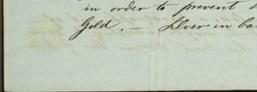 in order to prevent
Gold. — Silver in ba